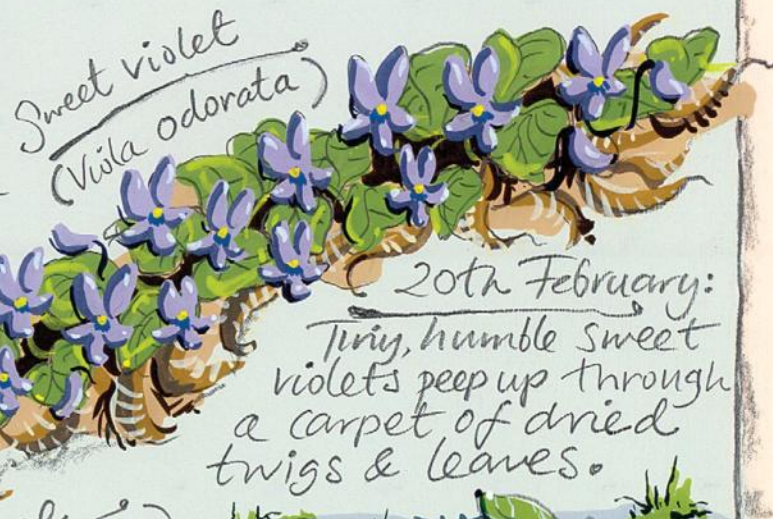 Sweet violet
(Viola odorata)
20th February:
Tiny, humble sweet
violets peep up through
a carpet of dried
twigs & leaves.